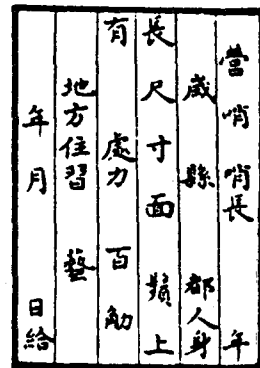 當哨哨長 年
歲 縣 都人身
長 尺 寸面 鬚上
有 處力 百觔
地方住習 藝
年 月 日給